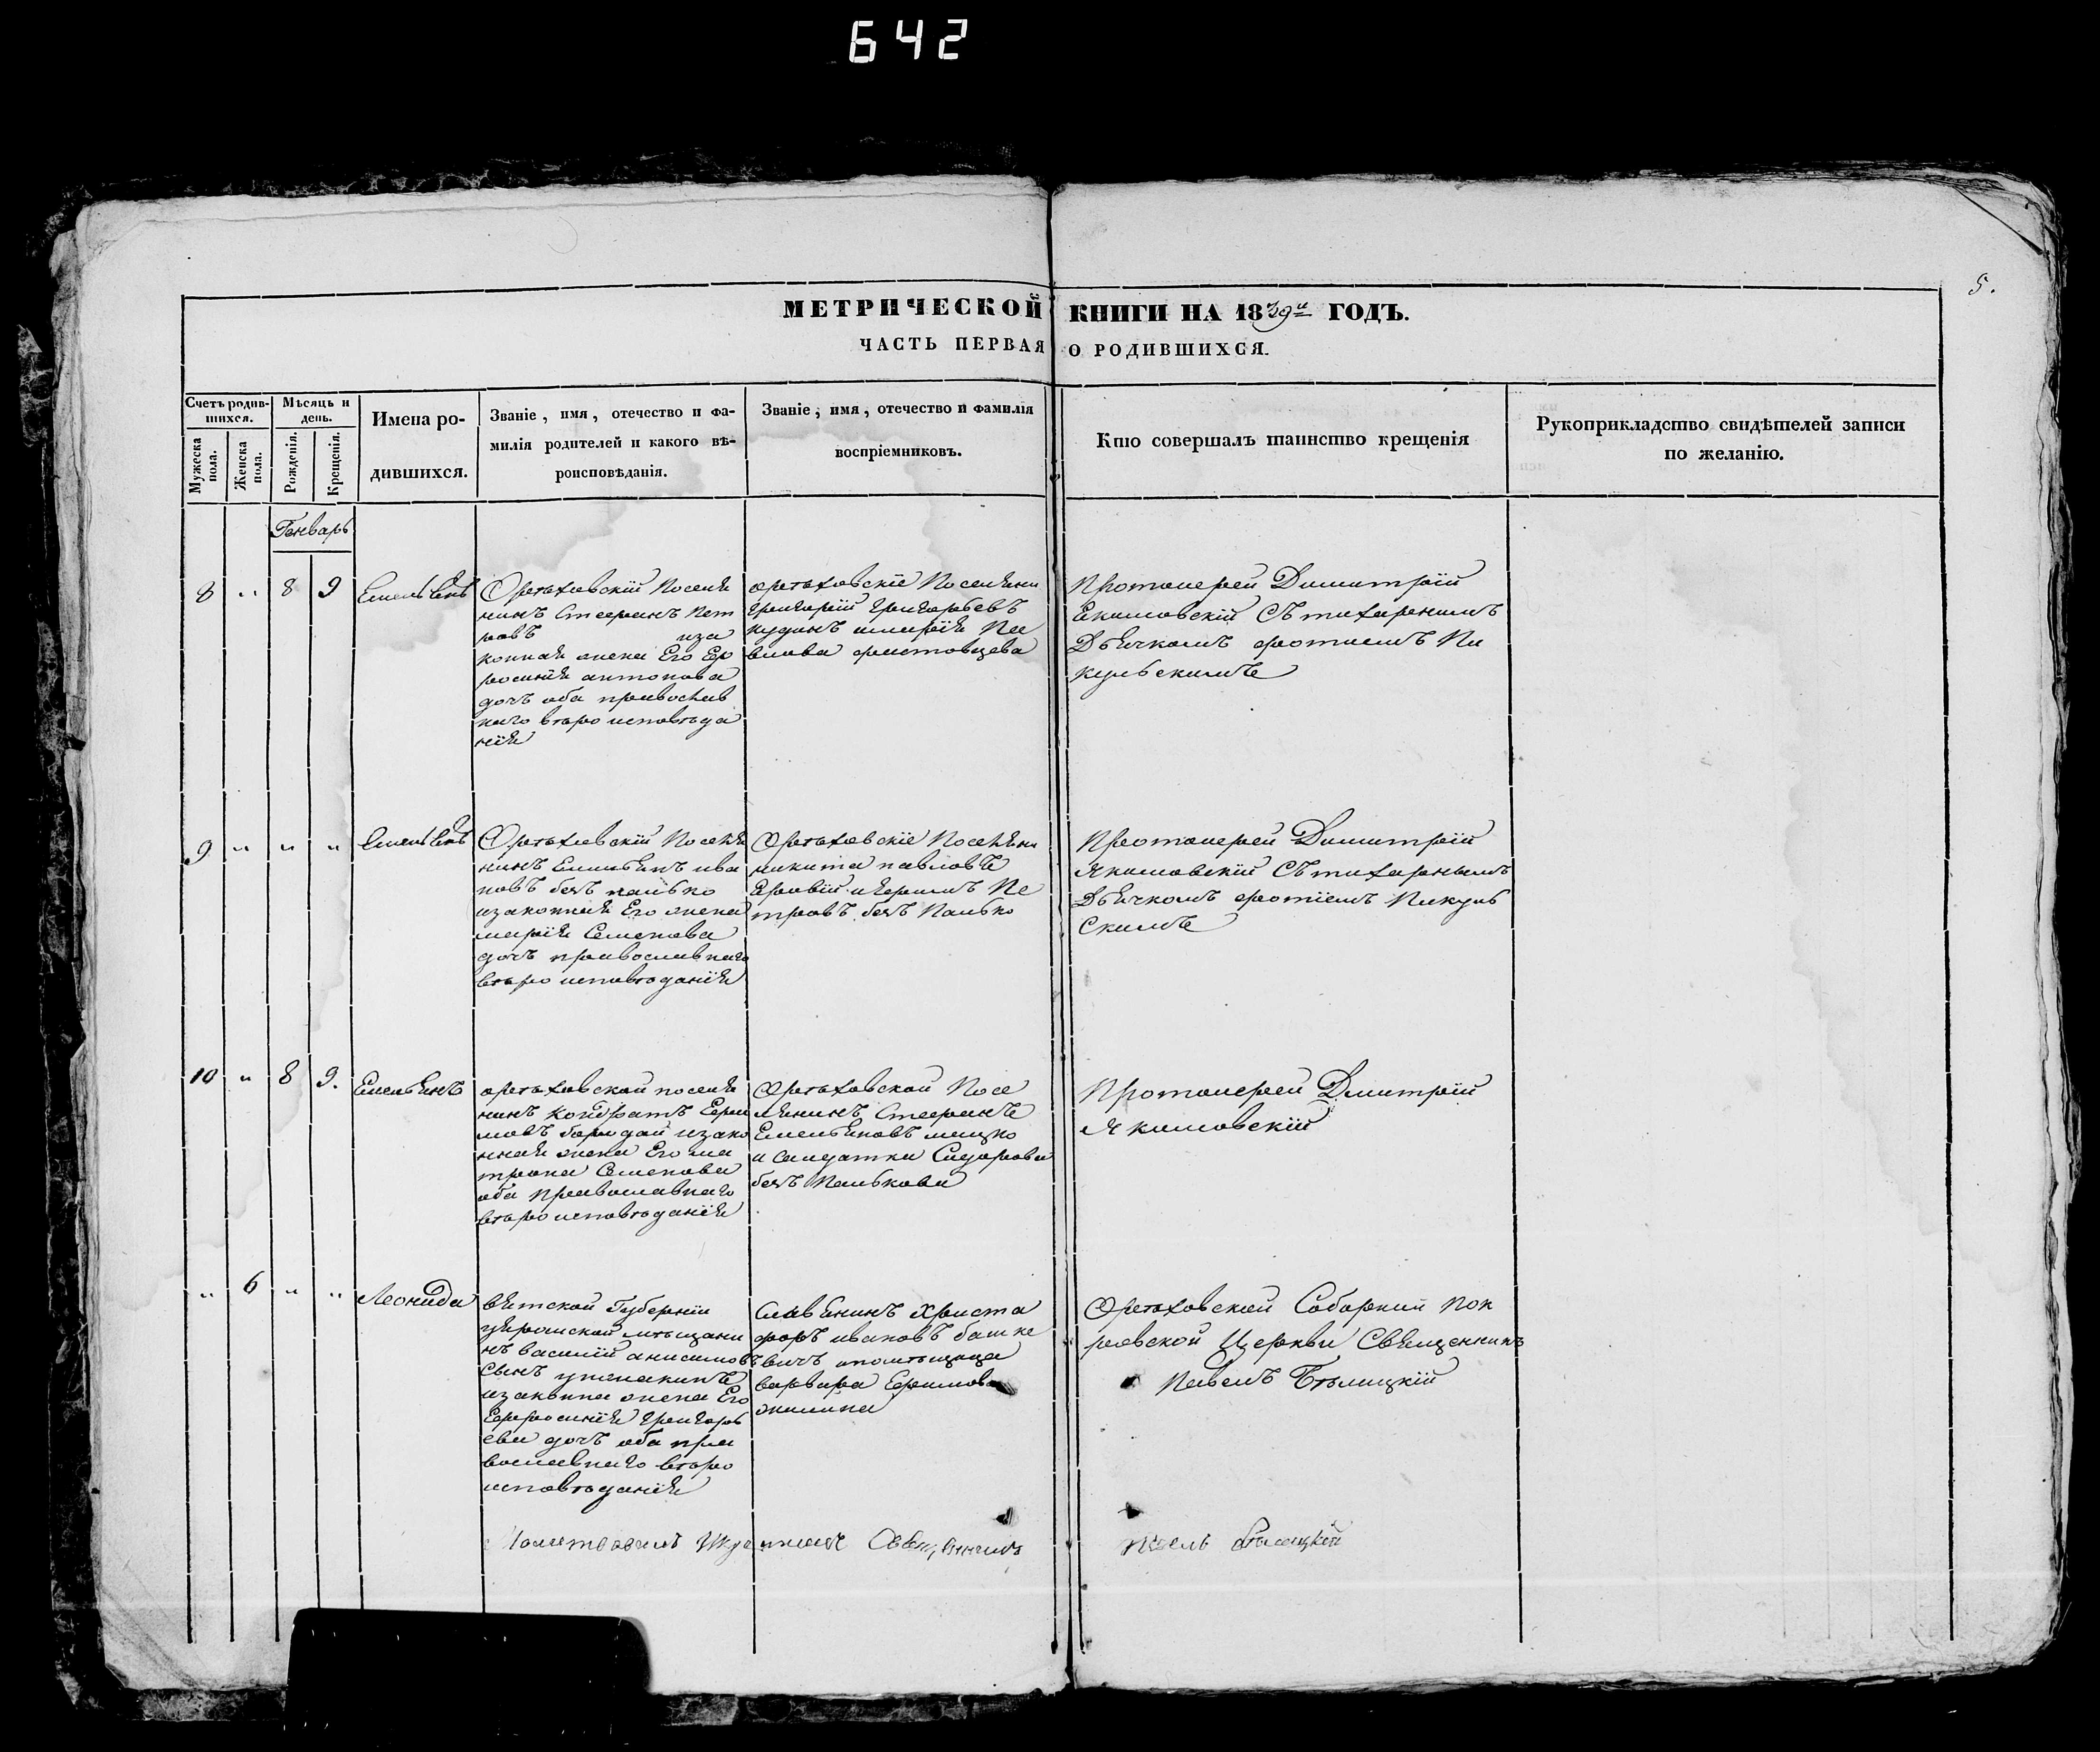 642
5.
МЕТРИЧЕСКОЙ КНИГИ НА 1839й ГОДЪ.
ЧАСТЬ ПЕРВАЯ О РОДИВШИХСЯ.
Счетъ родившихся.
Мужеска пола.
Женска пола.
Мѣсяцъ и день.
Рожденія.
Крещенія.
Имена родившихся.
Званіе, имя, отечество и фамилія родителей и какого вѣроисповѣданія.
Званіе, имя, отечество и фамилія воспріемниковъ.
Кто совершалъ таинство крещенія
Рукоприкладство свидѣтелей записи по желанію.
Генварь
8 " 8 9
Емельянъ
Орѣховскій Поселя
нинъ Стефанъ Пет
ровъ иза
конная жена Его Еф
росинія антонова
дочъ оба православ
наго вѣро исповѣда
нія
орѣховскіе Поселяни
григорій григорьевъ
кудинъ имарія Па
влова
Протоиерей Димитрій
Екимовскій Съ тихарнимъ
Дьячкомъ фотиемъ Пи
кульскимъ
9 " " "
Емельянъ
Орѣховскій Поселя
нинъ Емельянъ ива
новъ безъ палько
изаконная Его жена
марія Семенова
дочъ православнаго
вѣро исповѣданія
Орѣховскіе Поселяни
никита павловъ
Ефимъ Пе
тровъ безъ Палько
Протоиерей Димитрій
Якимовскій Съ тихарнымъ
Дьячкомъ фотіемъ Пикуль
Скимъ
10 " 8 9.
Емельянъ
орѣховской поселя
нинъ Кондратъ Ефи
мовъ бородай изако
нная жена Его ма
трона Семенова
оба православнаго
вѣро исповѣданія
Орѣховской Посе
лянинъ Стефанъ
Емельяновъ мацко
и солдатка Сидорова
безъ Палькова
Протоиерей Дмитрій
Якимовскій
" 6 " "
Леонида
вятской Губерніи
мѣщани
нъ василій анисимовъ
Сынъ
изаконна жена Его
Ефросинія григорь
ева дочъ оба пра
вославнаго вѣро
исповѣданія
Славянинъ Христо
форъ ивановъ башке
вичъ ипомѣщица
варвара Ефимова
жилина
Орѣховской Соборний пок
ровской Церкви Священникъ
Павелъ Бѣлицкій
Священникъ Павелъ Бѣлицкій